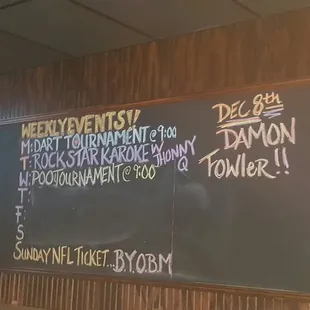 WEEKLY EVENTS!!
M: DART TOURNAMENT @ 9:00
T: ROCK STAR KAROKE W JHONNY Q
W: POOL TOURNAMENT @ 9:00
T:
F:
S:
S:
SUNDAY NFL TICKET... B.Y.O.B.M
DEC 8th
DAMON
FOWLER!!